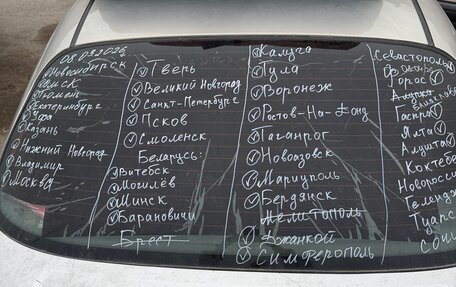 08.03.2026
✓Новосибирск
✓Омск
✓Тюмень
✓Екатеринбург
✓Уфа
✓Казань
✓Нижний Новгород
✓Владимир
✓Москва
✓Тверь
✓Великий Новгород
✓Санкт-Петербург
✓Псков
✓Смоленск
Беларусь:
✓Витебск
✓Могилёв
✓Минск
✓Барановичи
Брест
✓Калуга
✓Тула
✓Воронеж
✓Ростов-На-Дону
✓Таганрог
✓Новоазовск
✓Мариуполь
✓Бердянск
Мелитополь
✓Джанкой
✓Симферополь
Севастополь
Форос✓
Алупка
Гаспра✓
Ялта✓
Алушта
Коктебе
Новоросси
Геленд
Туапс
Сочи